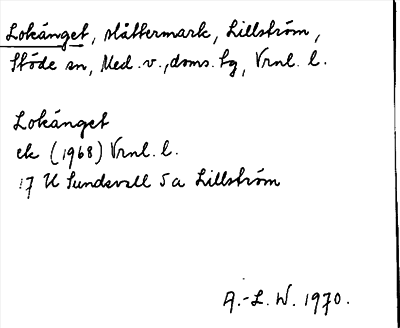 Lokänget, slåttermark, Lillström,
Stöde sn, Med. v., doms. tg, Vrnl. l.
Lokänget
ek (1968) Vrnl. l.
17 H Sundsvall 5 a Lillström
A.-L. W. 1970.